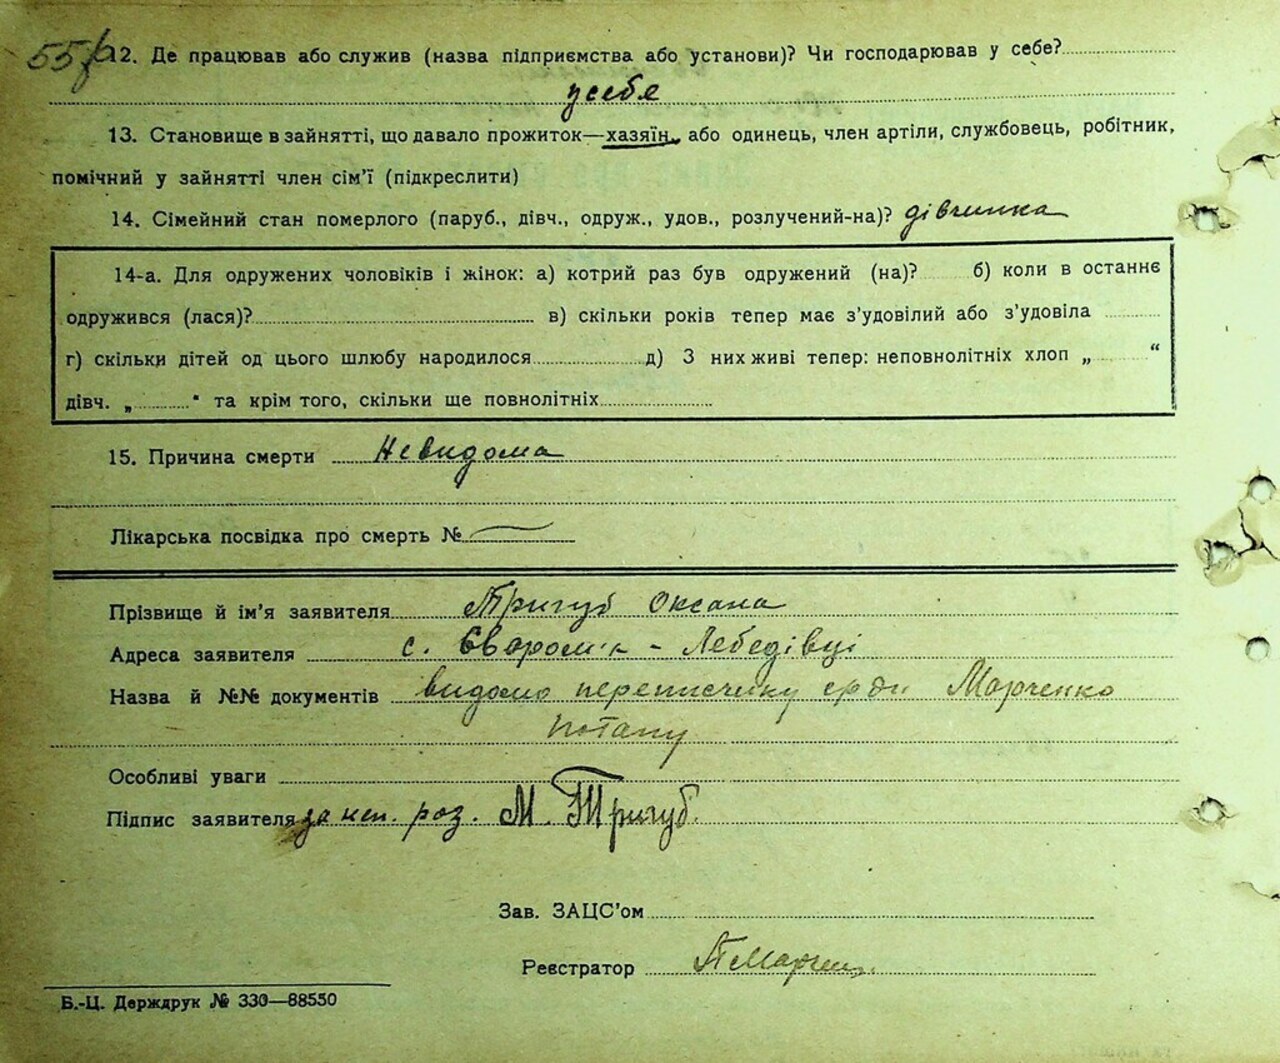 12. Де працював або служив (назва підприємства або установи)? Чи господарював у себе?
усебя
13. Становище в зайнятті, що давало прожиток—хазяїн, або одинець, член артіли, службовець, робітник,
помічний у зайнятті член сім'ї (підкреслити)
14. Сімейний стан померлого (паруб., дівч., одруж., удов., розлучений-на)? дівчинка
14-а. Для одружених чоловіків і жінок: а) котрий раз був одружений (на)? б) коли в останнє
одружився (лася)? в) скільки років тепер має з'удовілий або з'удовіла
г) скільки дітей од цього шлюбу народилося д) З них живі тепер: неповнолітніх хлоп „ “
дівч. „ “ та крім того, скільки ще повнолітніх
15. Причина смерти Невидома
Лікарська посвідка про смерть №
Прізвище й ім'я заявителя Тригуб Оксана
Адреса заявителя с. - Лебедівці
Назва й №№ документів видомо переписчику Марченко
Потапу
Особливі уваги
Підпис заявителя за неп. роз. М. Тригуб.
Зав. ЗАЦС'ом
Реєстратор
Б.-Ц. Держдрук № 330—88550